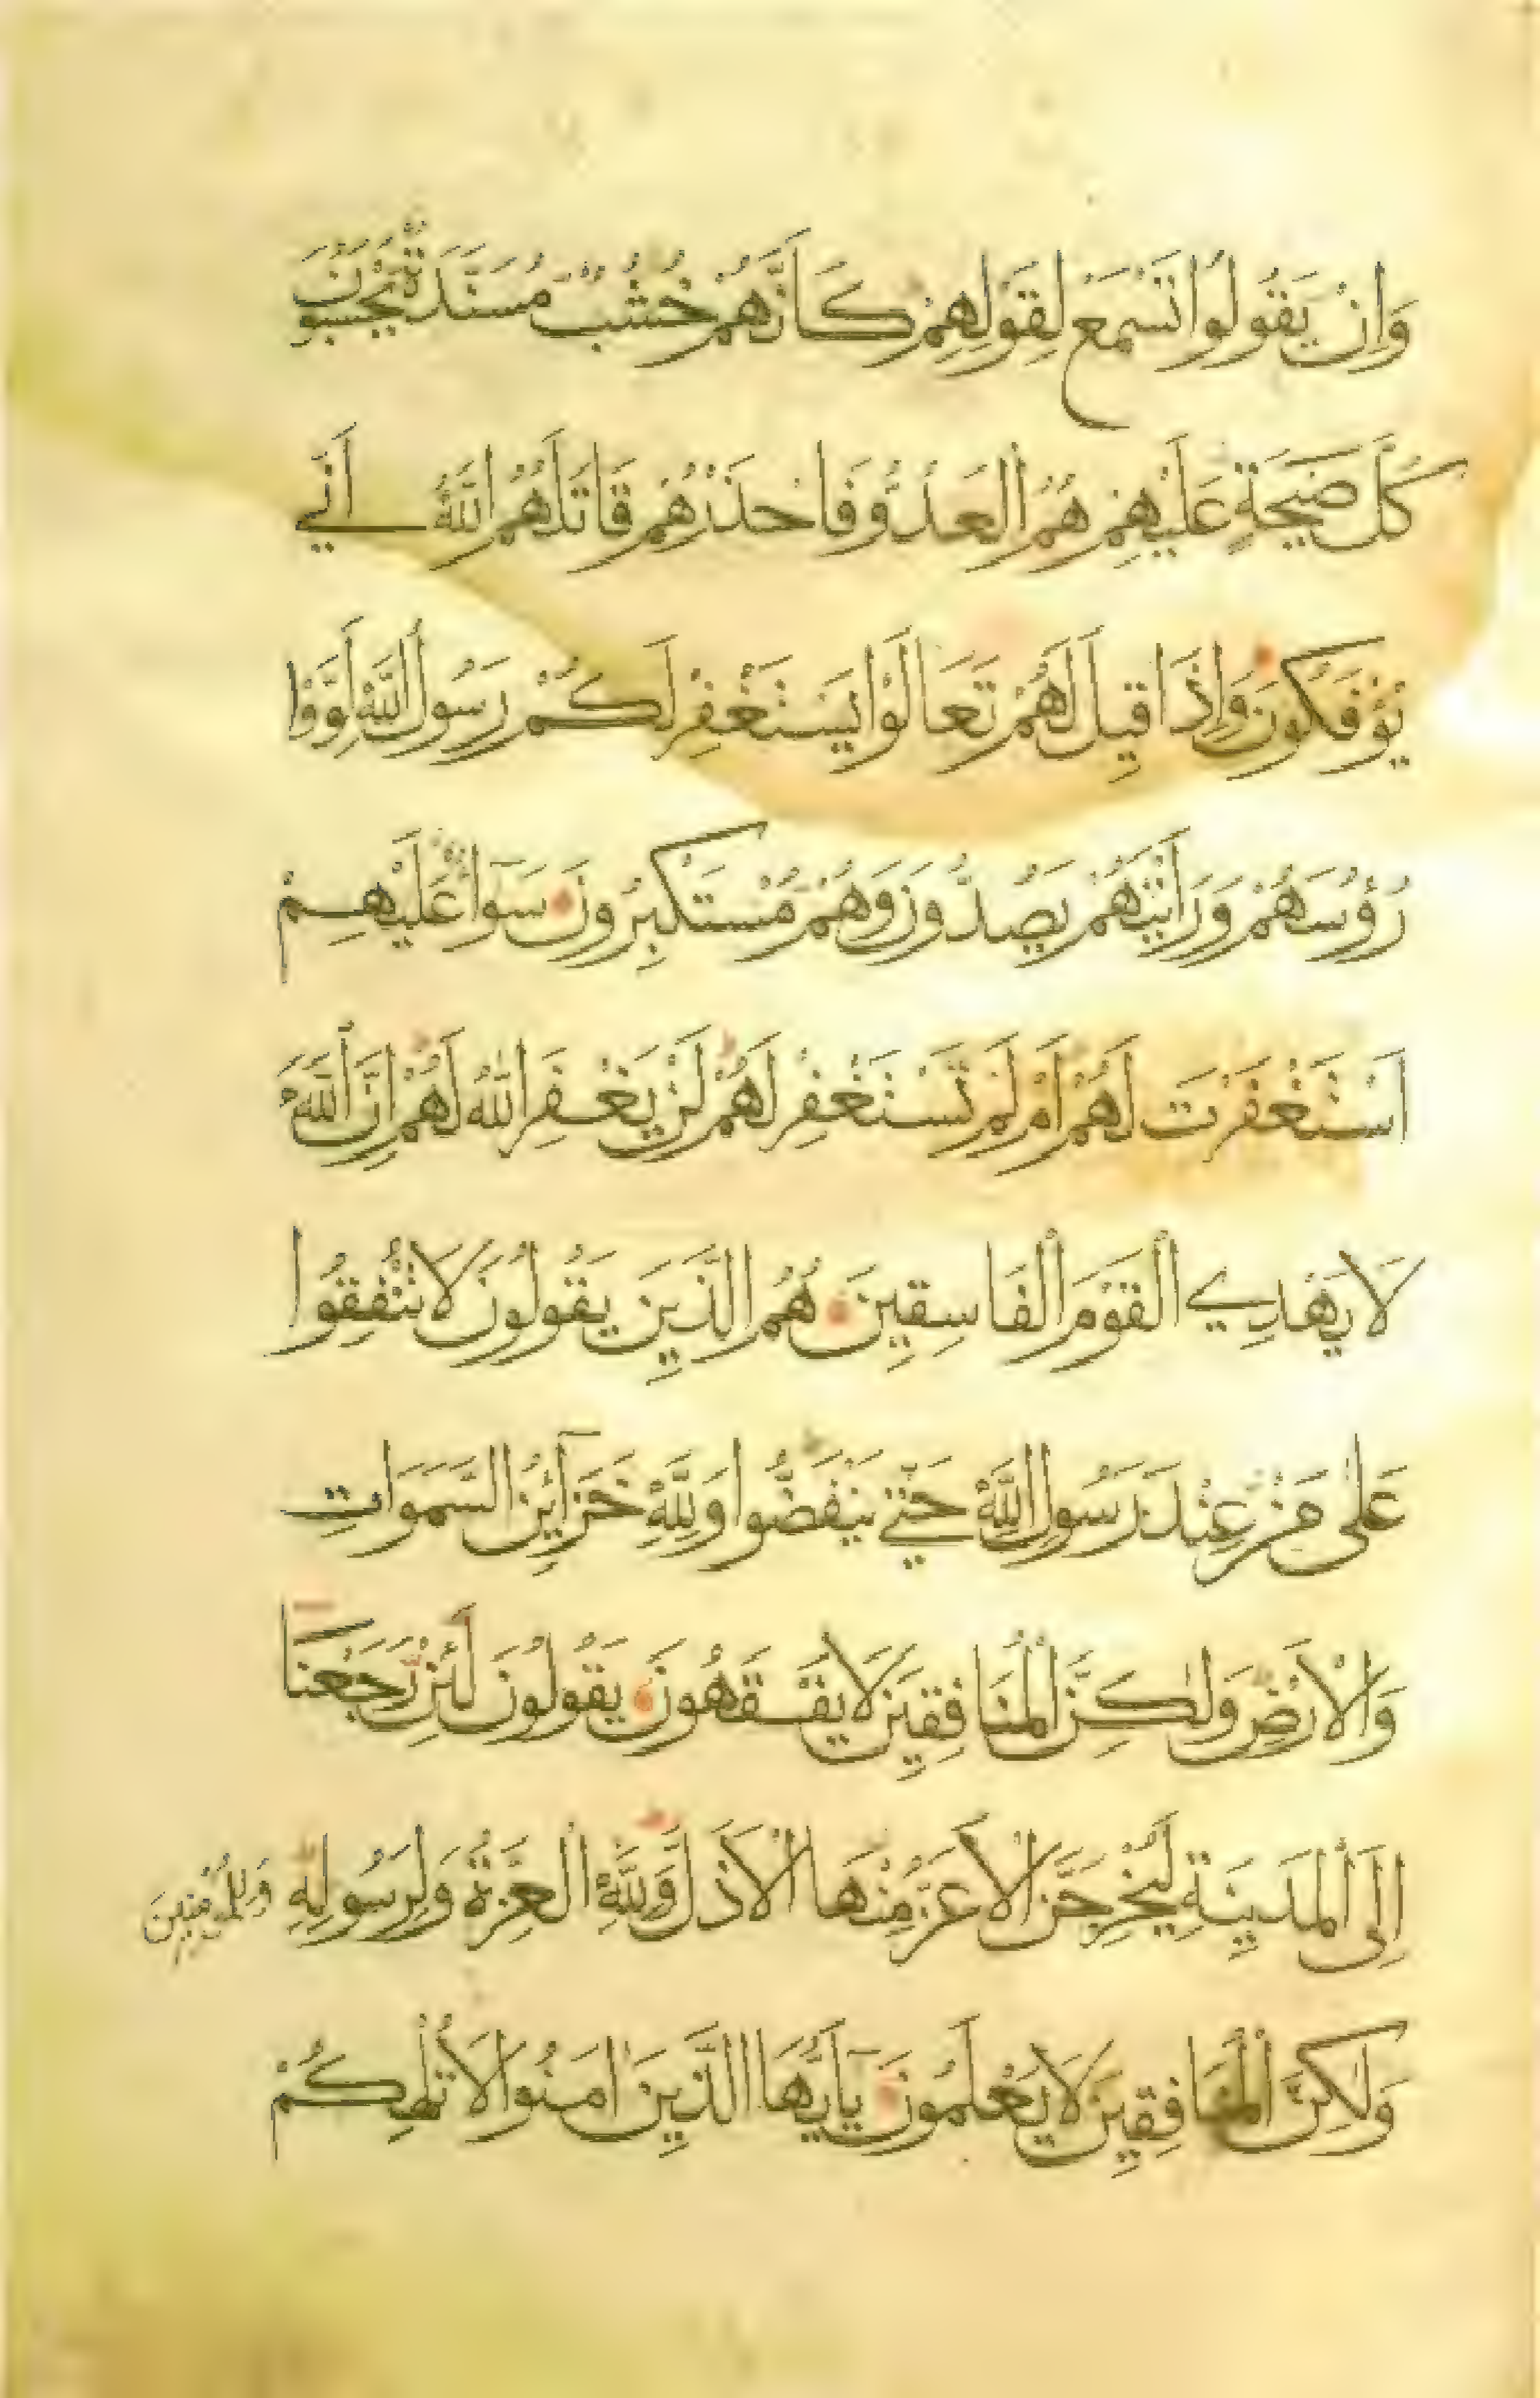 وَاِنْ يَقُولُوا تَسْمَعْ لِقَوْلِهِمْ كَاَنَّهُمْ خُشُبٌ مُسَنَّدَةٌ يَحْسَبُونَ
كُلَّ صَيْحَةٍ عَلَيْهِمْ هُمُ الْعَدُوُّ فَاحْذَرْهُمْ قَاتَلَهُمُ اللّٰهُ اَنّٰي
يُؤْفَكُونَ وَاِذَا قِيلَ لَهُمْ تَعَالَوْا يَسْتَغْفِرْ لَكُمْ رَسُولُ اللّٰهِ لَوَّوْا
رُؤُسَهُمْ وَرَاَيْتَهُمْ يَصُدُّونَ وَهُمْ مُسْتَكْبِرُونَ سَوَآءٌ عَلَيْهِمْ
اَسْتَغْفَرْتَ لَهُمْ اَمْ لَمْ تَسْتَغْفِرْ لَهُمْ لَنْ يَغْفِرَ اللّٰهُ لَهُمْ اِنَّ اللّٰهَ
لَا يَهْدِي الْقَوْمَ الْفَاسِقِينَ هُمُ الَّذِينَ يَقُولُونَ لَا تُنْفِقُوا
عَلٰى مَنْ عِنْدَ رَسُولِ اللّٰهِ حَتّٰي يَنْفَضُّوا وَلِلّٰهِ خَزَآئِنُ السَّمَوَاتِ
وَالْاَرْضِ وَلٰكِنَّ الْمُنَافِقِينَ لَا يَفْقَهُونَ يَقُولُونَ لَئِنْ رَجَعْنَا
اِلَى الْمَدِينَةِ لَيُخْرِجَنَّ الْاَعَزُّ مِنْهَا الْاَذَلَّ وَلِلّٰهِ الْعِزَّةُ وَلِرَسُولِهِ وَلِلْمُؤْمِنِينَ
وَلٰكِنَّ الْمُنَافِقِينَ لَا يَعْلَمُونَ يَآ اَيُّهَا الَّذِينَ اٰمَنُوا لَا تُلْهِكُمْ